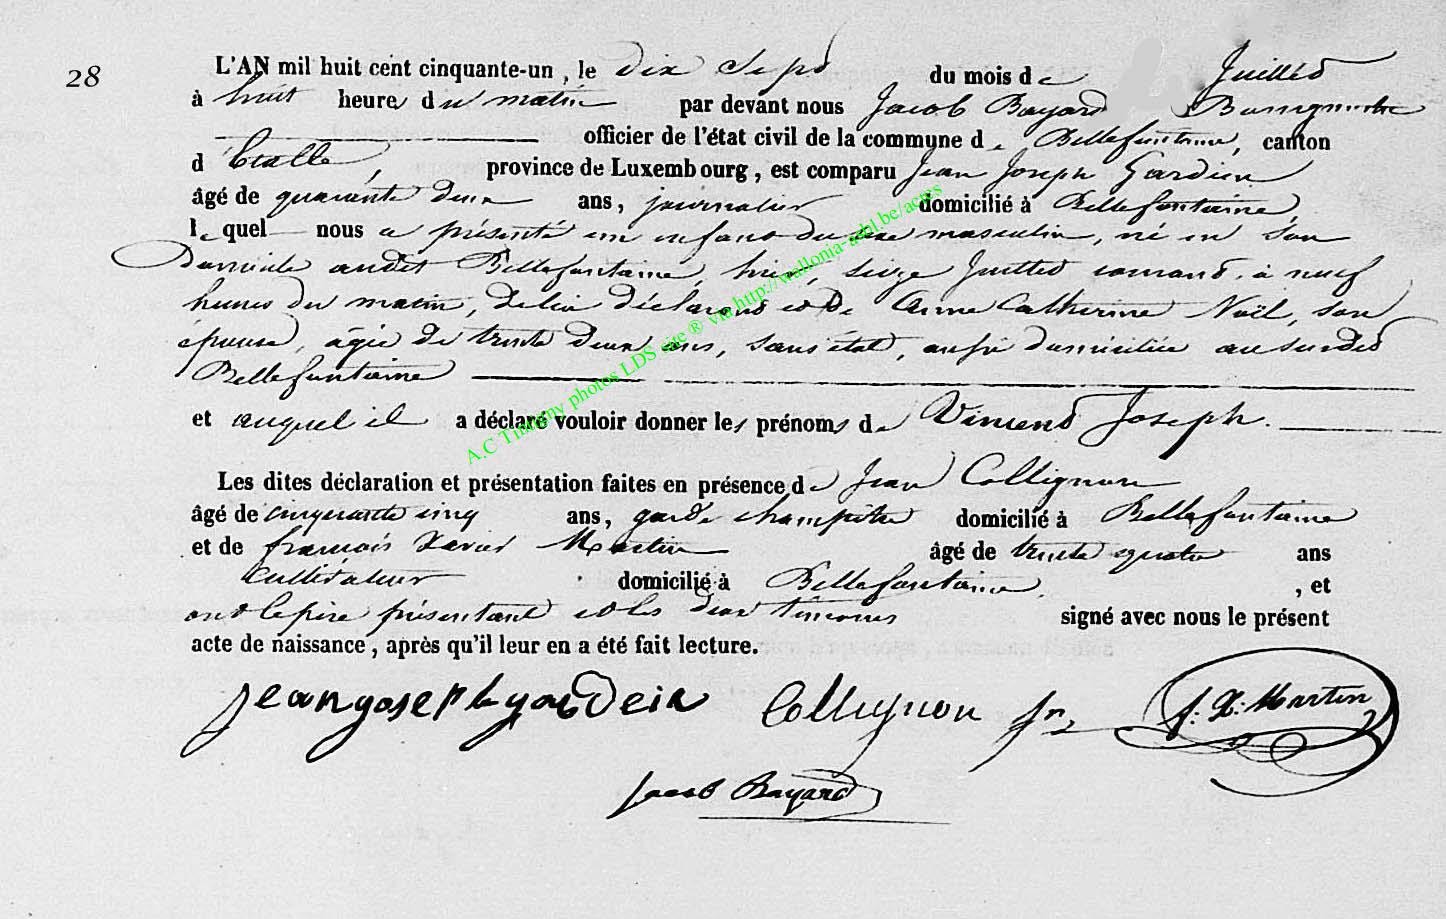 28
L'AN mil huit cent cinquante-un, le dix Sept du mois de Juillet
à huit heures du matin par devant nous Jacob Bayard Bourgmestre
officier de l'état civil de la commune de Bellefontaine, canton
d'Etalle, province de Luxembourg, est comparu Jean Joseph Gardien
âgé de quarante deux ans, journalier domicilié à Bellefontaine,
lequel nous a présenté un enfant du sexe masculin, né en son
Domicile audit Bellefontaine, hier, seize Juillet courant, à neuf
heures du matin, de lui déclarant et de Anne Catherine Noël, son
épouse, âgée de trente deux ans, sans état, aussi domiciliée au susdit
Bellefontaine
et auquel il a déclaré vouloir donner les prénoms de Vincent Joseph.
Les dites déclaration et présentation faites en présence de Jean Collignon
âgé de cinquante cinq ans, garde champêtre domicilié à Bellefontaine
et de françois Xavier Martin âgé de trente quatre ans
Cultivateur domicilié à Bellefontaine, et
ont le père présentant et les deux témoins signé avec nous le présent
acte de naissance, après qu'il leur en a été fait lecture.
jean joseph gardein Collignon jn f. X. Martin
Jacob Bayard
A.C Tintigny photos LDS site ® via http://wallonia-asbl.be/actes